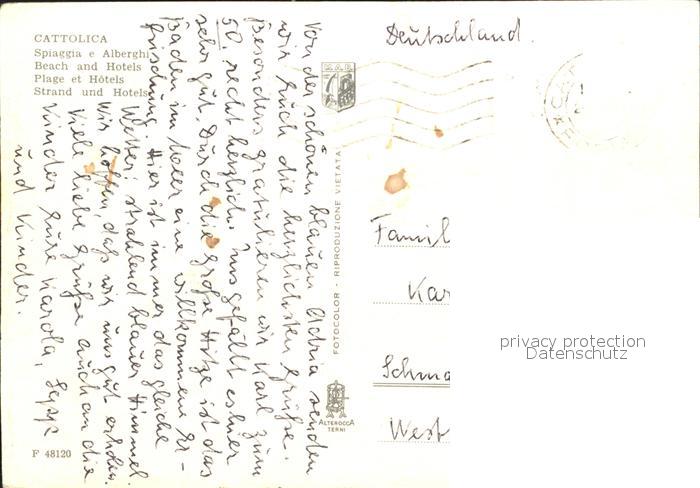 CATTOLICA
Spiaggia e Alberghi
Beach and Hotels
Plage et Hôtels
Strand und Hotels
Von der schönen blauen Adria senden
wir Euch die herzlichsten Grüße.
Besonders gratulieren wir Karl zum
50. recht herzlich. Uns gefällt es hier
sehr gut. Durch die große Hitze ist das
Baden im Meer eine willkommene Er-
frischung. Hier ist immer das gleiche
Wetter: strahlend blauer Himmel.
Wir hoffen, das wir uns gut erholen.
Viele liebe Grüße auch an die
Kinder Eure Karola, Sepp
und Kinder.
F 48120
FOTOCOLOR - RIPRODUZIONE VIETATA
ALTEROCCA
TERNI
Deutschland.
Famil
Kar
Schma
West
privacy protection
Datenschutz